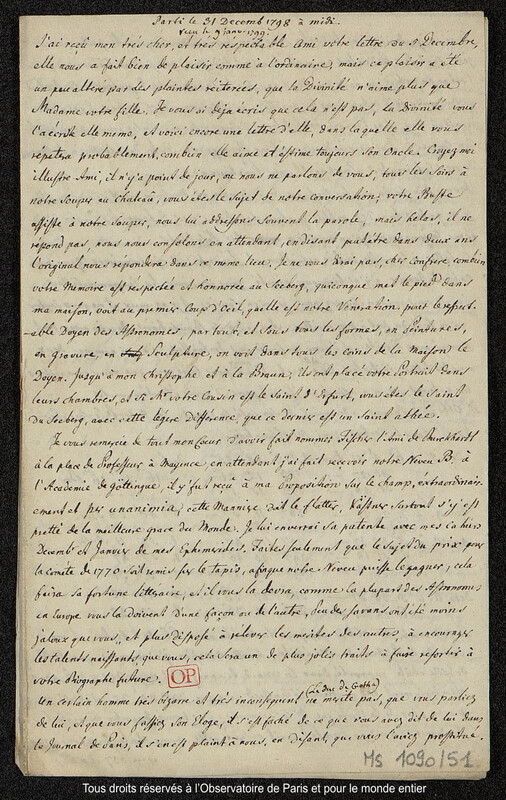 Parti le 31 Decemb 1798 à midi.
reçu le 9 janv. 1799.
J'ai reçû mon très cher, et très respectable Ami votre lettre du 5 Decembre,
elle nous a fait bien de plaisir comme à l'ordinaire; mais ce plaisir a été
un peu altéré par des plaintes réiterées, que la Divinité n'aime plus que
Madame votre fille. Je vous ai deja écris que cela n'est pas, la Divinité vous
l'a écrit elle meme, et voici encore une lettre d'elle, dans laquelle elle vous
répetera probablement, combien elle aime et estime toujours son Oncle. Croyez moi
illustre Ami, il n'y a point de jour, ou nous ne parlons de vous, tous les soirs à
notre souper au chateau, vous étes le sujet de notre conversation; votre Buste
assiste à notre souper, nous lui addressons souvent la parole, mais helas, il ne
répond pas, nous nous consolons en attendant, en disant peutetre dans deux ans
l'original nous repondera dans ce meme lieu. Je ne vous dirai pas, cher confrere combien
votre Memoire est respectée et honnorée au Seeberg, quiconque met le pied dans
ma maison, voit au premier coup d'oeil, quelle est notre Vénération pour le respect-
able Doyen des Astronomes, par tout, et sous tous les formes, en peintures,
en gravure, en Sculpture, on voit dans tous les coins de la Maison le
Doyen. Jusqu'à mon Christophe et à la Braun; ils ont placé votre Portrait dans
leurs chambres, et si Mr votre Cousin est le Saint d'Erfurt, vous étes le Saint
du Seeberg, avec cette légère différence, que ce dernier est un Saint athée.
Je vous remercie de tout mon coeur d'avoir fait nommer Fischer l'Ami de Burckhardt
à la place de Professeur à Mayence, en attendant j'ai fait recevoir notre Neveu B. à
l'Academie de Göttingue, il y fut reçu à ma Proposition sur le champ, extraordinair-
ement et per unanimia; cette Manniere doit le flatter, Kästner surtout s'y est
pretté de la meilleure grace du Monde. Je lui enverrai sa patente avec mes cahiers
Decemb. et Janvier de mes Ephemerides. Faites seulement que le sujet du prix pour
la cométe de 1770 soit remis sur le tapis, afin que notre Neveu puisse le gagner, cela
fera sa fortune litteraire, et il vous la devra, comme la plupart des Astronomes
en Europe vous la doivent d'une façon ou de l'autre, peu des savans ont été moins
jaloux que vous, et plus disposé à relever les merites des autres, à encourager
les talents naissants que vous, cela sera un de plus jolis traits à faire ressortir à
votre Biographe future.
OP
Un certain homme très bizarre et très inconsequent (Le Duc de Gotha) ne merite pas, que vous parliez
de lui, et que vous fassiez son Eloge, il s'est faché de ce que vous avez dit de lui dans
le Journal de Paris, il s'en est plaint à nous, en disant, que vous l'aviez prostitué.
Ms 1090/51
Tous droits réservés à l'Observatoire de Paris et pour le monde entier